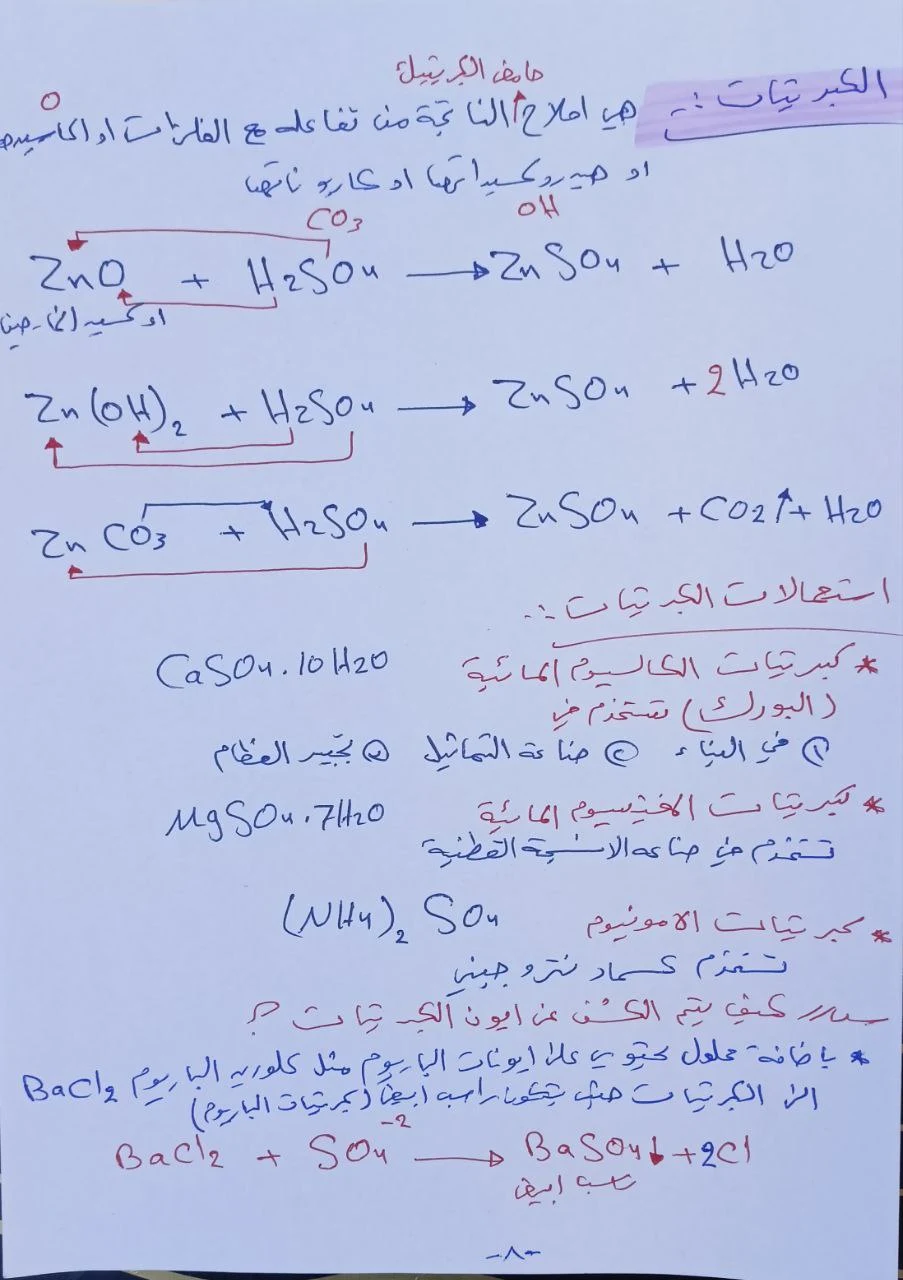 حامض الكبريتيك
الكبريتيات :- هي املاح الناتجة من تفاعله مع الفلزات او اكاسيدها
O
او هيدروكسيداتها او كاربوناتها
CO3 OH
ZnO + H2SO4 → ZnSO4 + H2O
اوكسيد الخارصين
Zn(OH)2 + H2SO4 → ZnSO4 + 2H2O
ZnCO3 + H2SO4 → ZnSO4 + CO2↑ + H2O
استعمالات الكبريتيات :-
* كبريتيات الكالسيوم المائية CaSO4.10H2O
(البورك) تستخدم في
① في البناء ② صناعة التماثيل ③ تجبير العظام
* كبريتيات المغنيسيوم المائية MgSO4.7H2O
تستخدم في صناعة الانسجة القطنية
* كبريتيات الامونيوم (NH4)2 SO4
تستخدم كسماد نتروجيني
س/ كيف يتم الكشف عن ايون الكبريتيات ؟
* باضافة محلول يحتوي على ايونات الباريوم مثل كلوريد الباريوم BaCl2
الى الكبريتيات حيث يتكون راسب ابيض (كبريتيات الباريوم)
BaCl2 + SO4-2 → BaSO4↓ + 2Cl
راسب ابيض
-٨-